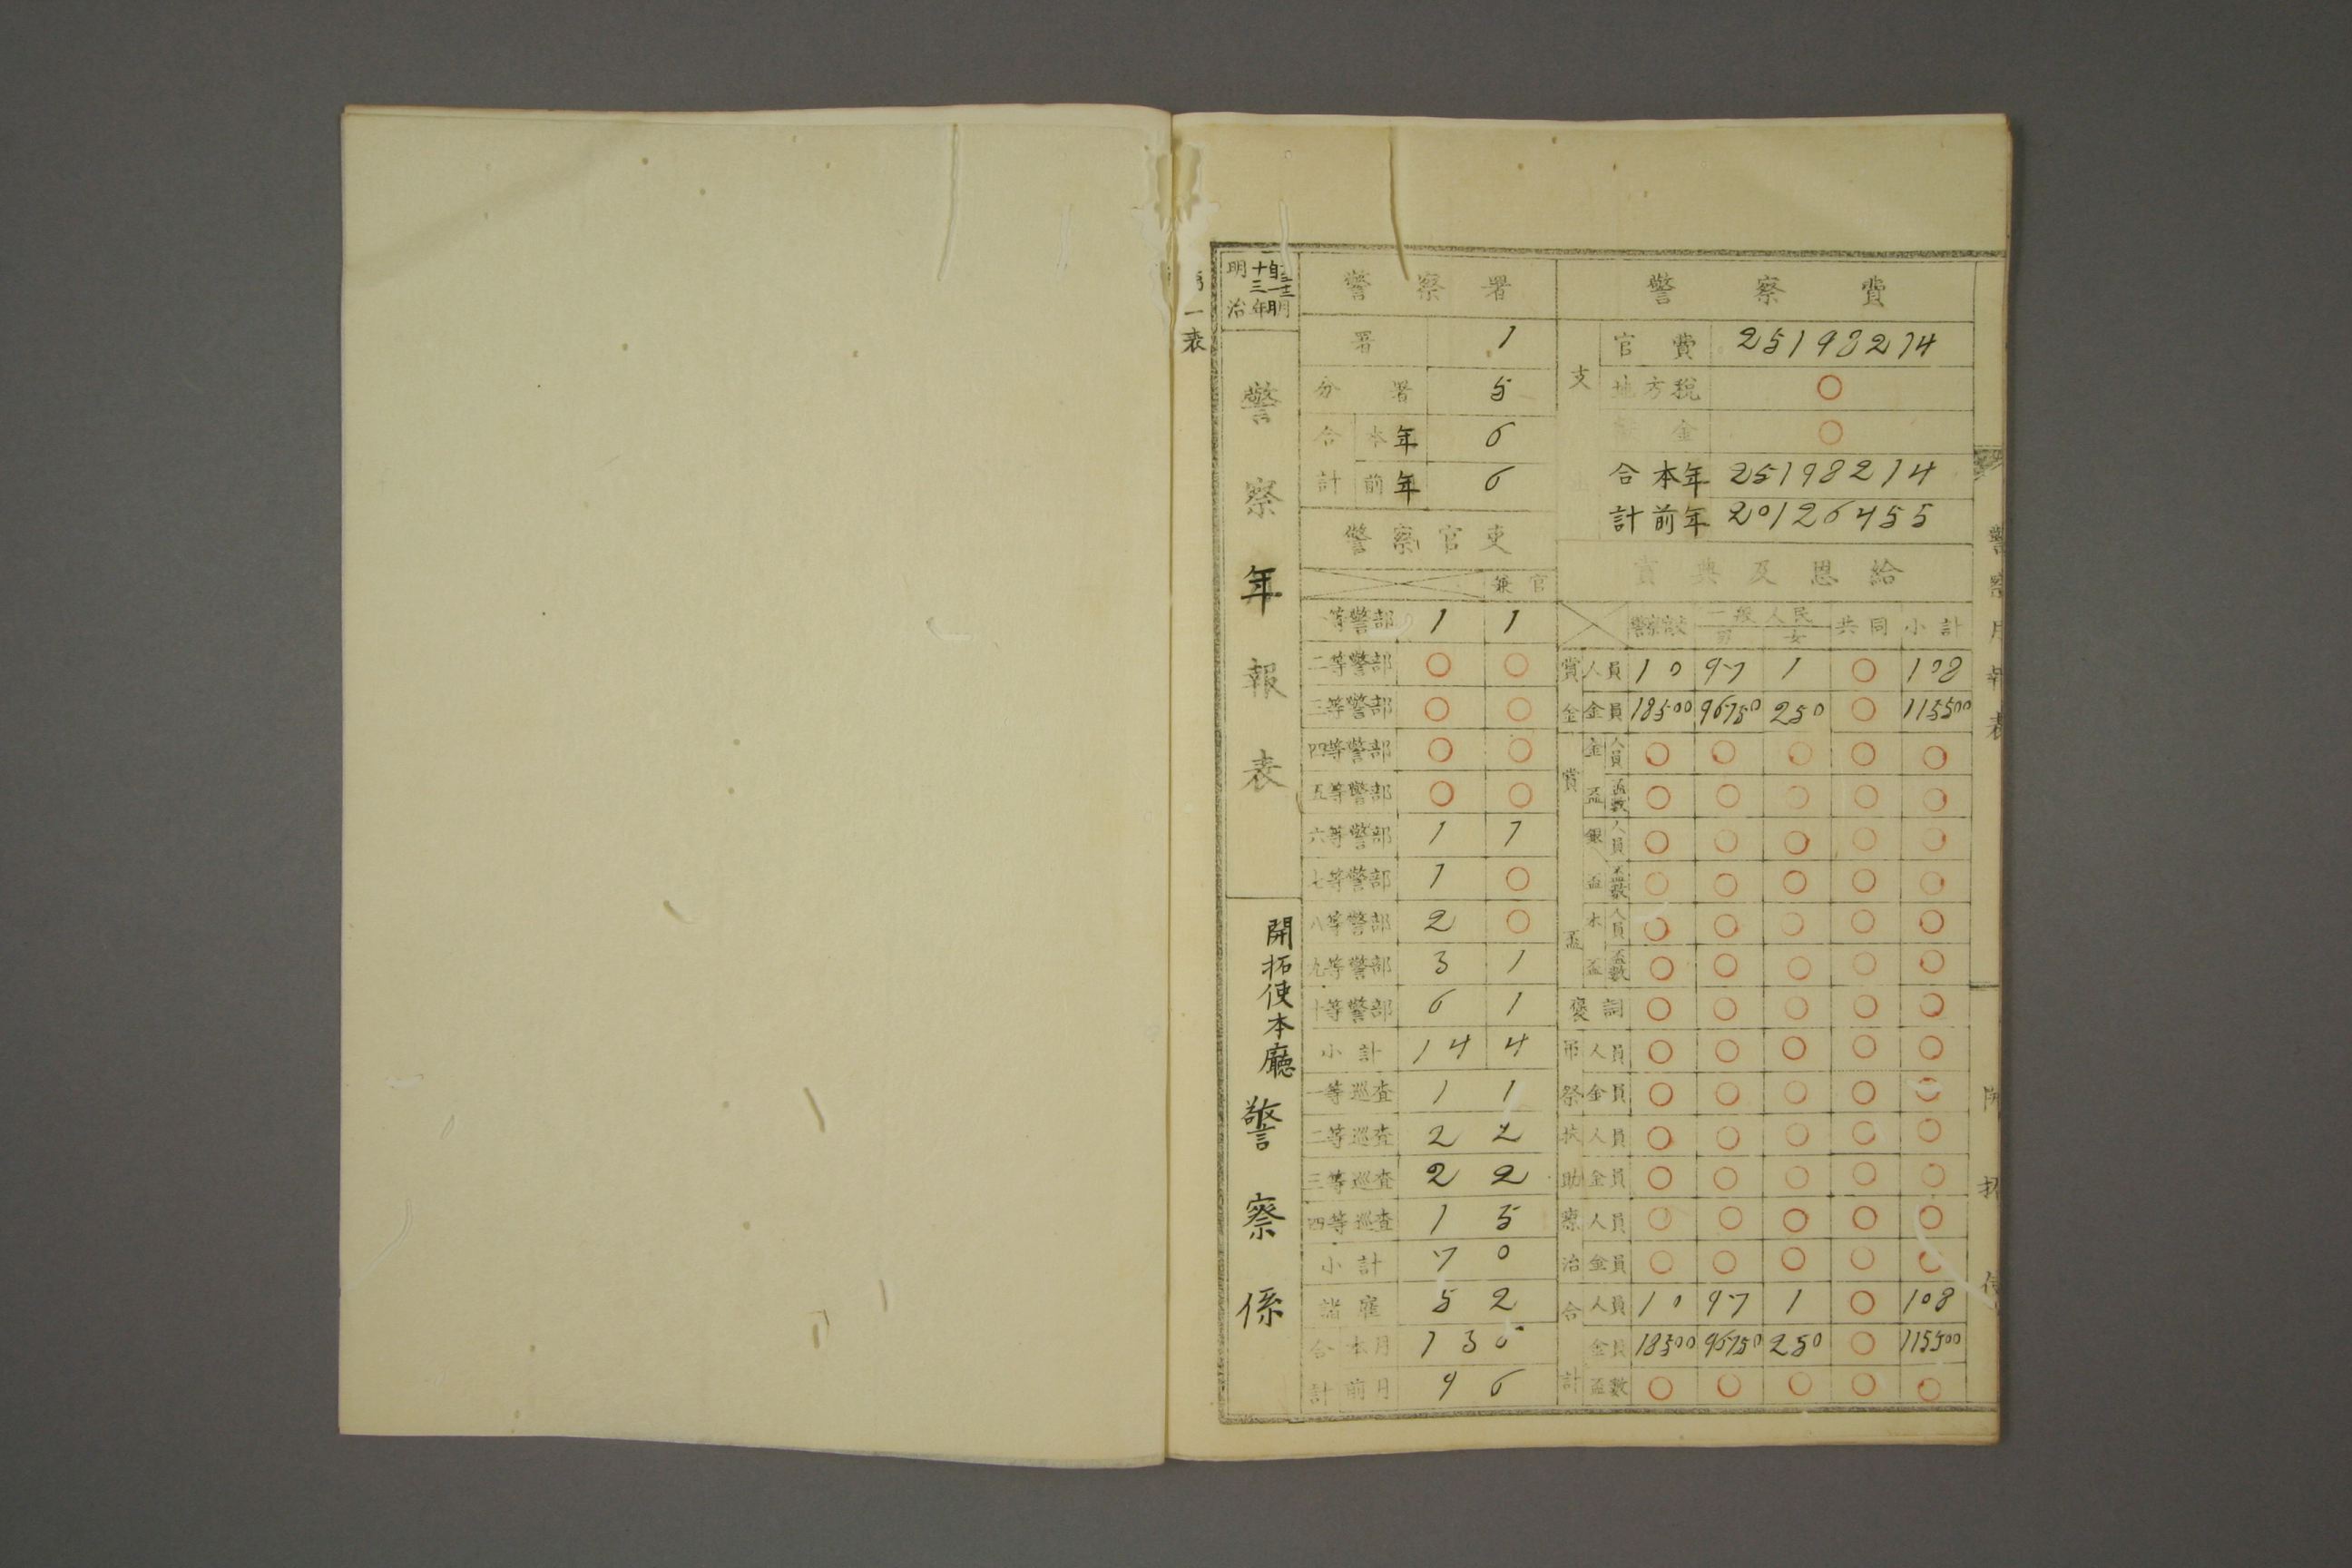 第一表
明治十三年
警察年報表
開拓使本廳警察係
警察署
署 1
分署 5
合計 本年 6
前年 6
警察官吏
兼官
一等警部 1 1
二等警部 ○ ○
三等警部 ○ ○
四等警部 ○ ○
五等警部 ○ ○
六等警部 1 1
七等警部 1 ○
八等警部 2 ○
九等警部 3 1
十等警部 6 1
小計 14 4
一等巡査 1 1
二等巡査 2 2
三等巡査 2 2
四等巡査 1 5
小計 7 0
諸雇 5 2
合計 本月 136
前月 96
警察費
支 官費 25198214
地方税 ○
金 ○
合計 本年 25198214
前年 20126455
賞典及恩給
一般人民 男 女 共同 小計
賞金 人員 10 97 1 ○ 108
金員 18500 96750 250 ○ 115500
賞盃 金盃 人員 ○ ○ ○ ○ ○
盃數 ○ ○ ○ ○ ○
銀盃 人員 ○ ○ ○ ○ ○
盃數 ○ ○ ○ ○ ○
木盃 人員 ○ ○ ○ ○ ○
盃數 ○ ○ ○ ○ ○
褒詞 ○ ○ ○ ○ ○
吊祭 人員 ○ ○ ○ ○ ○
金員 ○ ○ ○ ○ ○
扶助 人員 ○ ○ ○ ○ ○
金員 ○ ○ ○ ○ ○
療治 人員 ○ ○ ○ ○ ○
金員 ○ ○ ○ ○ ○
合計 人員 10 97 1 ○ 108
金員 18500 96750 250 ○ 115500
盃數 ○ ○ ○ ○ ○
警察月報表
開拓使